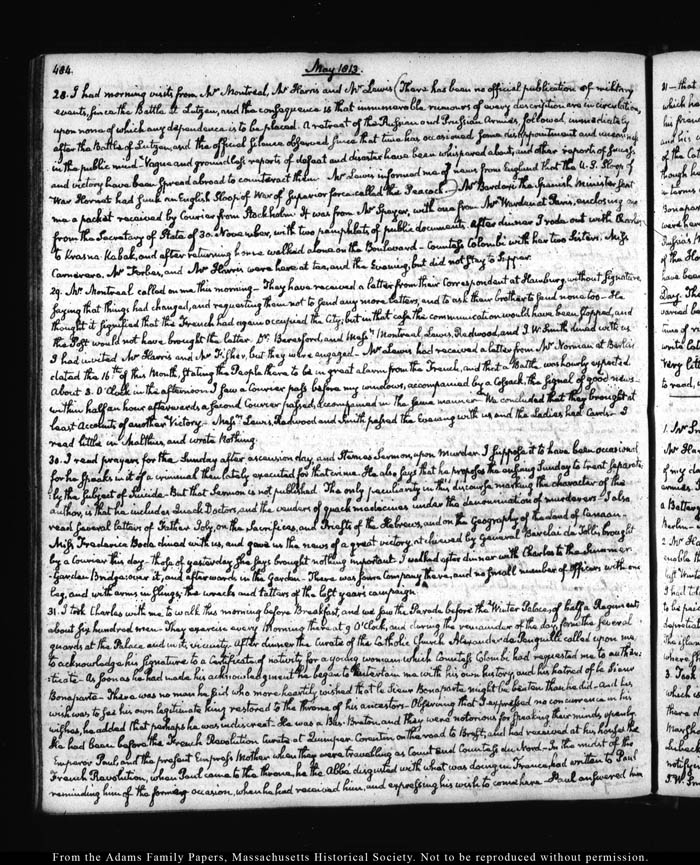 484.
May 1813.
28. I had morning visits from Mr Montréal, Mr Harris and Mr Lewis (There has been no official publication of military
events, since the Battle of Lutzen, and the consequence is that innumerable rumours of every description are in circulation,
upon none of which any dependence is to be placed. A retreat of the Russian and Prussian Armies, followed immediately
after the Battle of Lutzen, and the official silence observed since that time has occasioned some disappointment and uneasiness
in the public mind. Vague and groundless reports of defeat and disaster have been whispered about, and other reports of success
and victory have been spread abroad to counteract them. Mr Lewis informed me of news from England that the U.S. Sloop of
War Hornet had sunk an English Sloop of War of superior force called the Peacock.) Mr Bardaxi the Spanish Minister sent
me a packet received by Courier from Stockholm. It was from Mr Speyer, with one from Mr Warden at Paris, enclosing one
from the Secretary of State of 30. November, with two pamphlets of public documents. After dinner I rode out with Charles
to Krasna Kabak, and after returning home walked alone on the Boulevard. Countess Colombi with her two Sisters, Miss
Carnovero, Mr Forbes, and Mr Hurd were here at tea, and the Evening, but did not stay to Supper.
29. Mr Montreal called on me this morning. They have received a letter from their Correspondent at Hamburg, without Signature
saying that things had changed, and requesting them not to send any more letters, and to ask their brother to send none too. He
thought it signified that the French had again occupied the City; but in that case the communication would have been stopped, and
the Post would not have brought the letter. Dr Beresford, and Messrs Montreal, Lewis, Redwood, and J. W. Smith dined with us
I had invited Mr Harris and Mr Fisher, but they were engaged. Mr Lewis had received a letter from Mr Norman at Berlin
dated the 16th of this Month, stating the People there to be in great alarm from the French, and that a Battle was hourly expected
About 3. O'Clock in the afternoon I saw a Courier pass before my windows, accompanied by a Cossack, the signal of good news.
within half an hour afterwards a second Courier passed, accompanied in the same manner. We concluded that they brought at
least Accounts of another Victory. Messrs Lewis, Redwood and Smith passed the Evening with us and the Ladies had Cards. I
read little in Malthus, and wrote Nothing.
30. I read prayers for the Sunday after ascension day, and Sterne's Sermon, upon murder. I suppose it to have been occasional
for he speaks in it of a criminal then lately executed for that crime. He also says that he proposes the ensuing Sunday to treat separate-
-ly the subject of Suicide. But that Sermon is not published. The only peculiarity in this discourse marking the character of the
author, is that he includes Quack Doctors, and the venders of quack medicines under the denomination of murderers. I also
read several letters of Father Joly, on the Sacrifices, and Priests of the Hebrews, and on the Geography of the land of Canaan.
Miss Frederica Bode dined with us, and gave us the news of a great victory, atchieved by General Barclai de Tolli, brought
by a Courier this day. Those of yesterday she says brought nothing important. I walked after dinner with Charles to the Summer-
-Garden Bridge; over it, and afterwards in the Garden. There was some Company there, and no small number of Officers with one
leg, and with arms in slings; the wrecks and tatters of the last years campaign.
31. I took Charles with me to walk this morning before Breakfast, and we saw the Parade before the Winter Palace, of half a Regiment
about six hundred men. They exercise every Morning there at 9 O'Clock, and during the remainder of the day form the several
guards at the Palace and in its vicinity. After dinner the Curate of the Catholic Church Alexander de Penquilli called upon me,
to acknowledge his signature to a Certificate of nativity for a young woman which Countess Colombi had requested me to authen-
-ticate. As soon as he had made his acknowledgment he began to entertain me with his own history, and his hatred of le Sieur
Bonaparte. There was no man he said who more heartily wished that le Sieur Bonaparte might be beaten than he did, and his
wish was to see his own legitimate king restored to the throne of his ancestors. Observing that I expressed no concurrence in his
wishes, he added that perhaps he was indiscreet. He was a Bas-Breton, and they were notorious for speaking their minds openly.
He had been before the French Revolution Curate at Quimper Corentin on the road to Brest, and had received at his house the
Emperor Paul, and the present Empress Mother when they were travelling as Count and Countess du Nord. In the midst of the
French Revolution, when Paul came to the throne, he the Abbé disgusted with what was doing in France, had written to Paul
reminding him of the former occasion, when he had received him, and expressing his wish to come here. Paul answered him
From the Adams Family Papers, Massachusetts Historical Society. Not to be reproduced without permission.